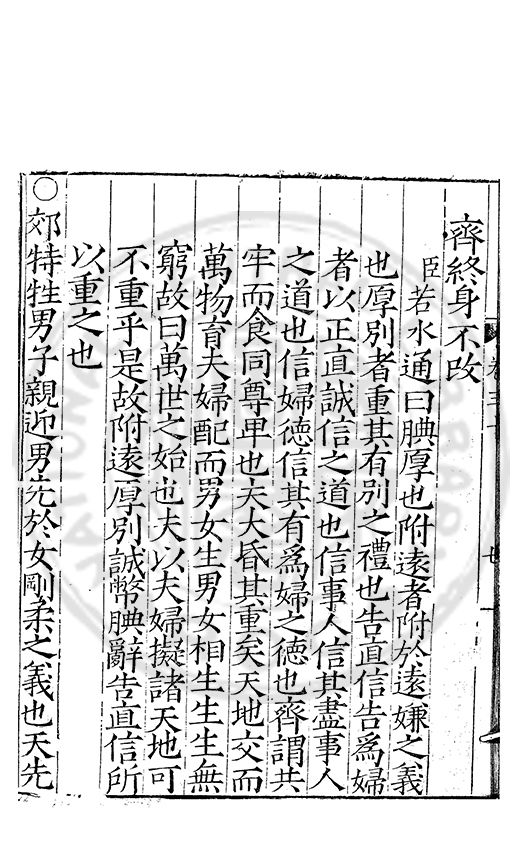 齊終身不改
臣若水通曰腆厚也附遠者附於遠嫌之義
也厚別者重其有別之禮也告直信告爲婦
者以正直誠信之道也信事人信其盡事人
之道也信婦德信其有爲婦之德也齊謂共
牢而食同尊卑也夫大昏其重矣天地交而
萬物育夫婦配而男女生男女相生生生無
窮故曰萬世之始也夫以夫婦擬諸天地可
不重乎是故附遠厚別誠幣腆辭告直信所
以重之也
○郊特牲男子親迎男先於女剛柔之義也天先